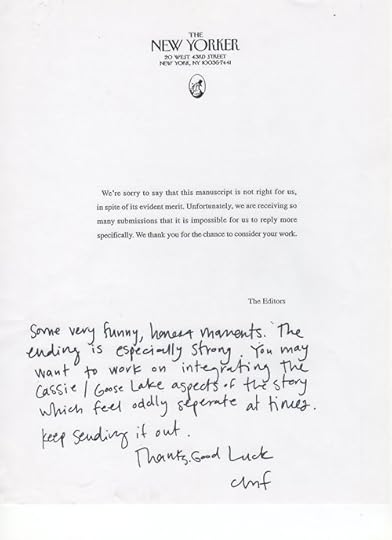 THE
NEW YORKER
20 WEST 43RD STREET
NEW YORK, NY 10036-7441
We're sorry to say that this manuscript is not right for us,
in spite of its evident merit. Unfortunately, we are receiving so
many submissions that it is impossible for us to reply more
specifically. We thank you for the chance to consider your work.
The Editors
Some very funny, honest moments. The
ending is especially strong. You may
want to work on integrating the
Cassie/Goose Lake aspects of the story
which feel oddly seperate at times.
Keep sending it out.
Thanks. Good Luck